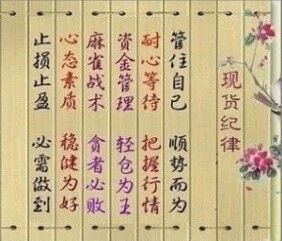 现货纪律
管住自己 顺势而为
耐心等待 把握行情
资金管理 轻仓为王
麻雀战术 贪者必败
心态素质 稳健为好
止损止盈 必需做到